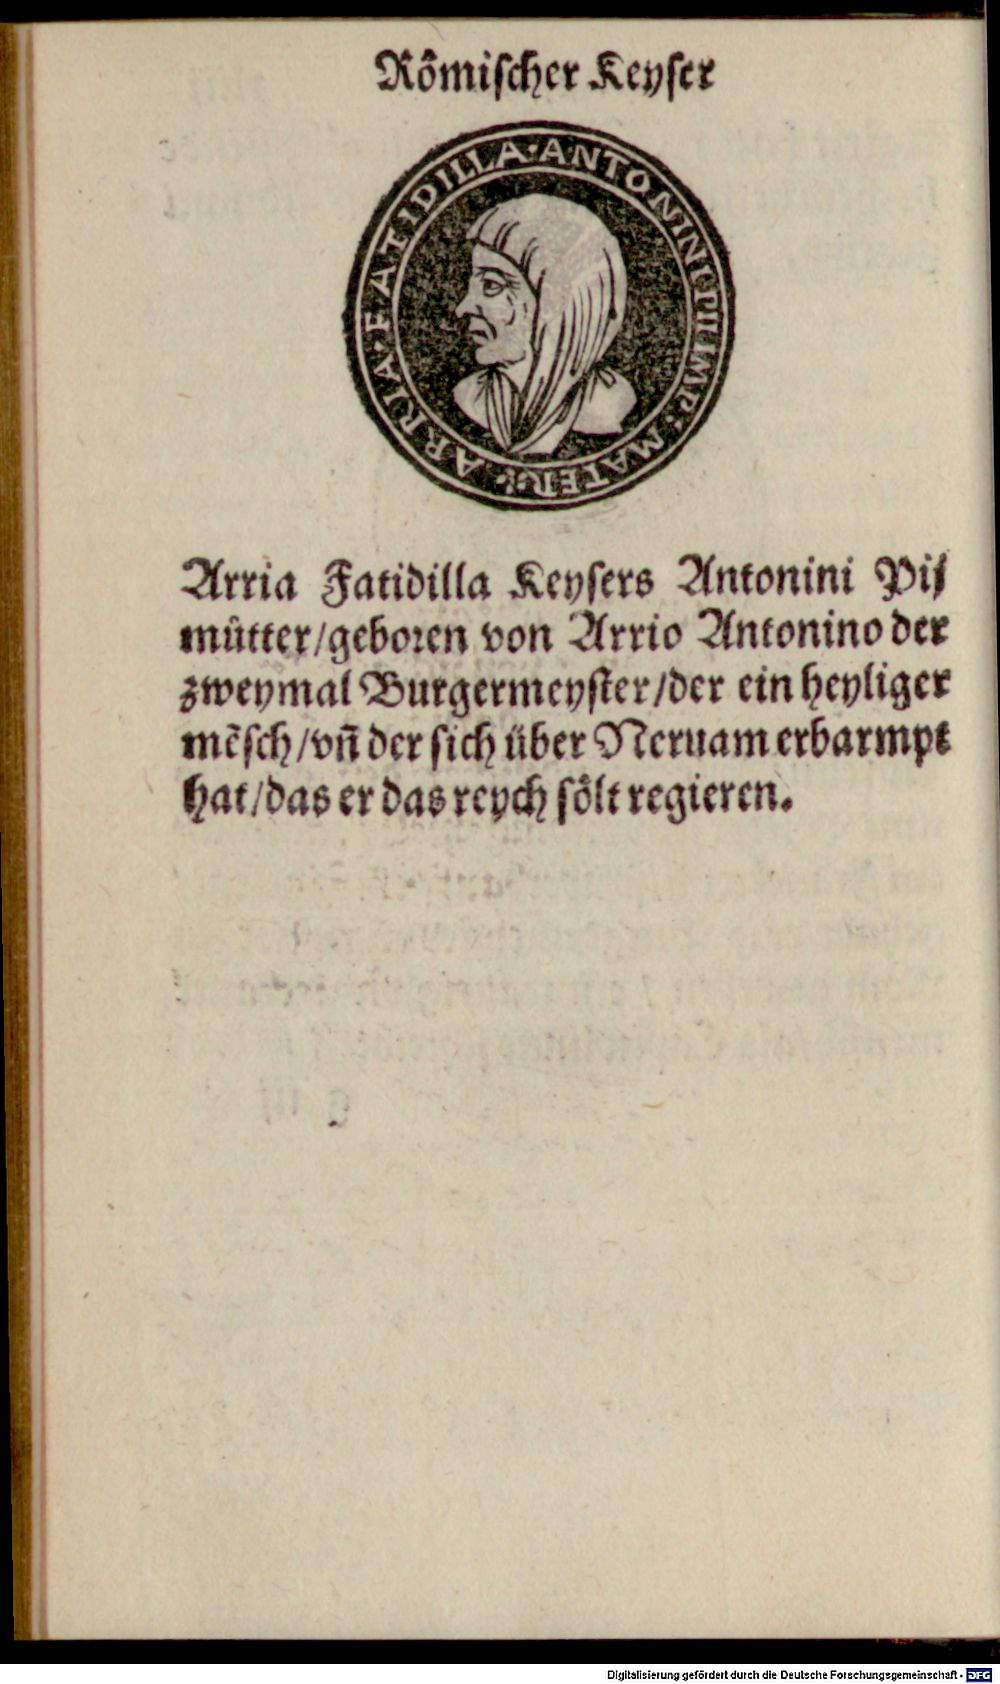 Roͤmiſcher Keyſer
ARRIA · FATIDILLA · ANTONINI PII IMP: MATER
Arria Fatidilla Keyſers Antonini Pij
muͤtter/geboꝛen von Arrio Antonino der
zweymal Burgermeyſter/der ein heyliger
mẽſch/vñ der ſich uͤber Neruam erbarmpt
hat/das er das reych ſoͤlt regieren.
Digitalisierung gefördert durch die Deutsche Forschungsgemeinschaft - DFG